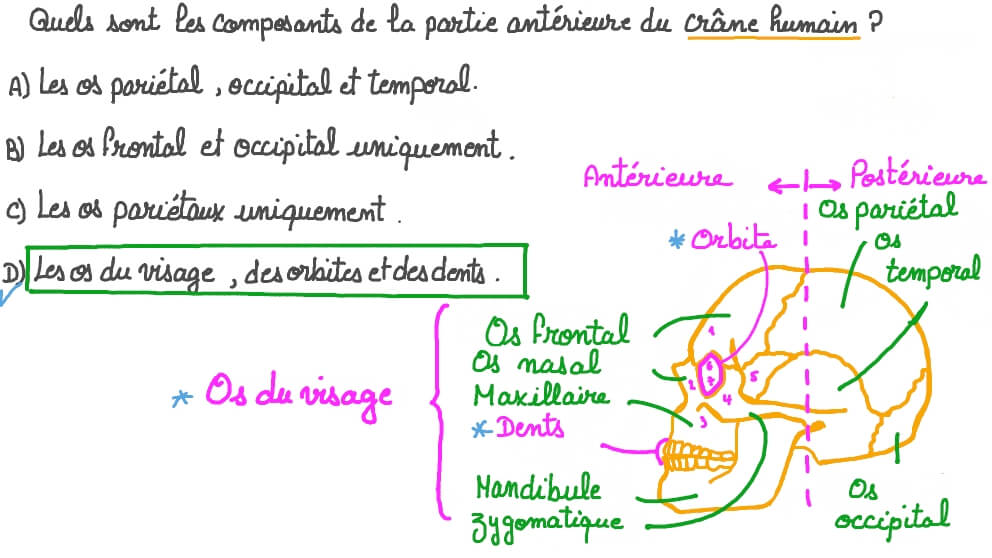 Quels sont les composants de la partie antérieure du crâne humain ?
A) Les os pariétal , occipital et temporal.
B) Les os frontal et occipital uniquement .
C) Les os pariétaux uniquement .
D) Les os du visage , des orbites et des dents .
Antérieure
Postérieure
Os pariétal
* Orbite
Os
temporal
Os frontal
Os nasal
Maxillaire
* Dents
Mandibule
zygomatique
* Os du visage
1
2
6
7
5
4
3
Os
occipital